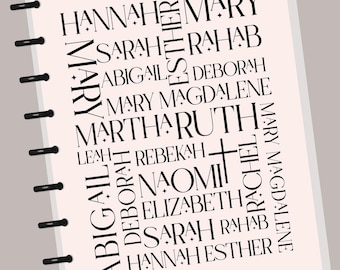 HANNAH MARY
MARY
SARAH
ESTHER
RAHAB
ABIGAIL
DEBORAH
MARY MAGDALENE
MARTHA RUTH
LEAH
REBEKAH
ABIGAIL
DEBORAH
NAOMI
RACHEL
MARY MAGDALENE
ELIZABETH
SARAH RAHAB
HANNAH ESTHER